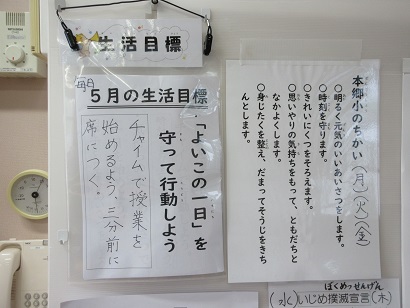 生活目標
毎日
5月の生活目標
「よいこの一日」を
守って行動しよう
チャイムで授業を
始めるよう、三分前に
席につく。
本郷小のちかい (月)(火)(金)
○明るく元気のいいあいさつをします。
○時刻を守ります。
○きれいにくつをそろえます。
○思いやりの気持ちをもって、ともだちと
なかよくします。
○身じたくを整え、だまってそうじをきち
んとします。
ぼくめつせんげん
(水)いじめ撲滅宣言(木)